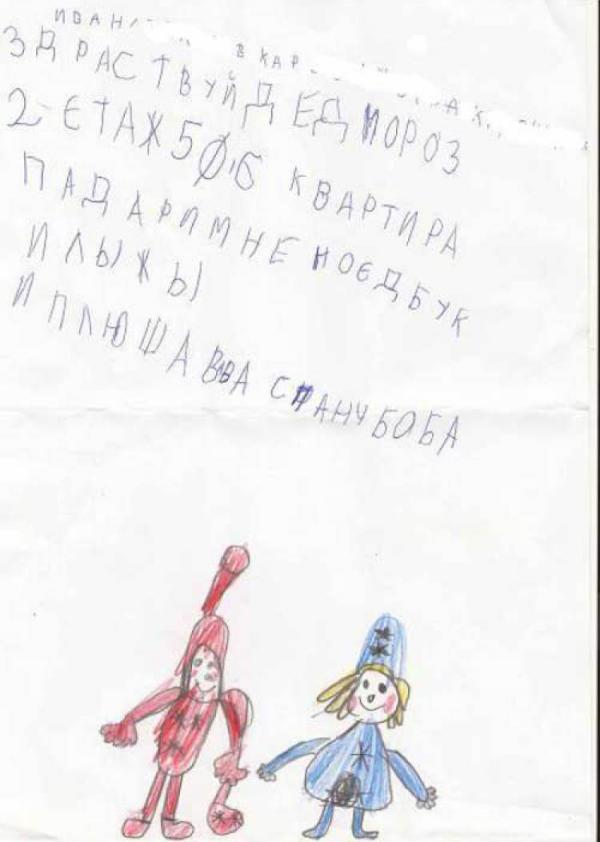 ЗДРАСТВУЙ ДЕД МОРОЗ
2-ЕТАЖ 506 КВАРТИРА
ПАДАРИ МНЕ НОЕДБУК
И ЛЫЖЫ
И ПЛЮШАВВА СПАНЧБОБА